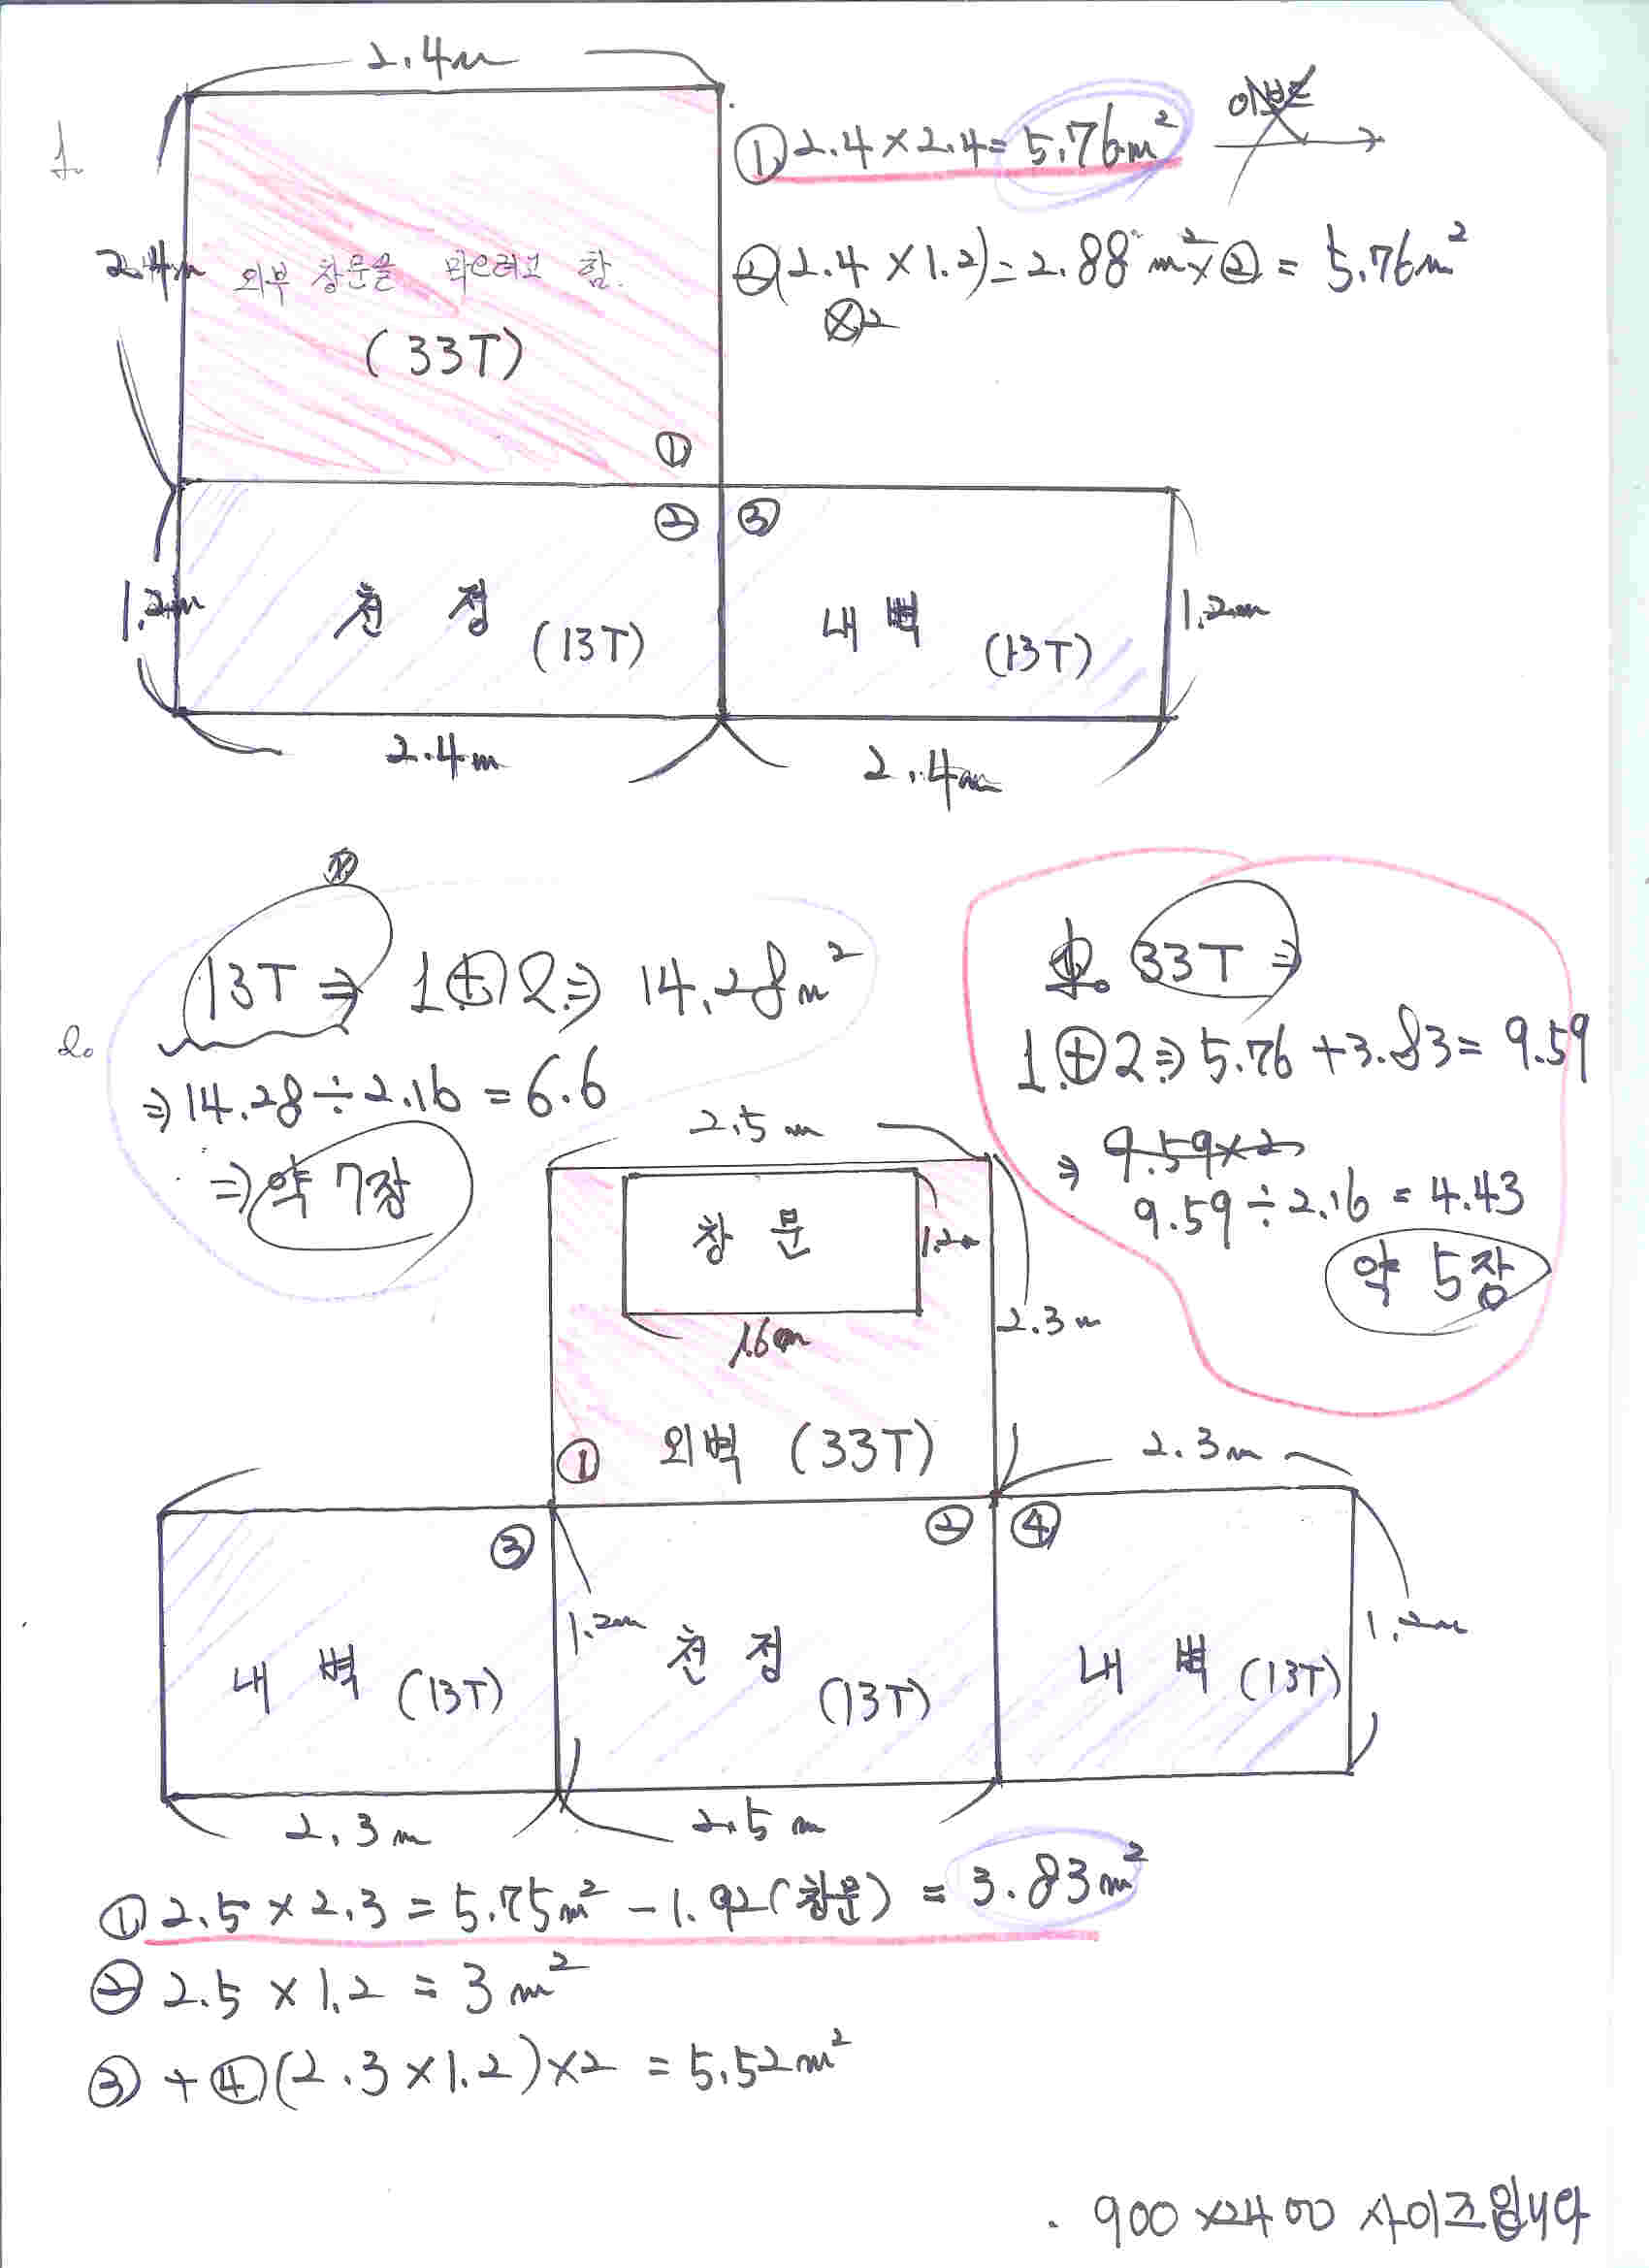 2.4m
1.
① 2.4 × 2.4 = 5.76m²
2.4m
외부 창문을 막으려고 함.
② (2.4 × 1.2) = 2.88 m² × ② = 5.76m²
×2
(33T)
①
② ③
1.2m
천 정 (13T)
내 벽 (13T)
1.2m
2.4m
2.4m
13T ⇒ 1 ⊕ 2 ⇒ 14.28m²
2.
⇒ 14.28 ÷ 2.16 = 6.6
⇒ 약 7장
33T ⇒
1 ⊕ 2 ⇒ 5.76 + 3.83 = 9.59
⇒ 9.59×2
9.59 ÷ 2.16 = 4.43
약 5장
2.5m
창 문
1.2m
1.6m
2.3m
① 외벽 (33T)
2.3m
③ ② ④
내 벽 (13T)
1.2m
천 정 (13T)
내 벽 (13T)
1.2m
2.3m
2.5m
① 2.5 × 2.3 = 5.75m² - 1.92(창문) = 3.83m²
② 2.5 × 1.2 = 3m²
③ + ④ (2.3 × 1.2) × 2 = 5.52m²
. 900 × 2400 사이즈입니다